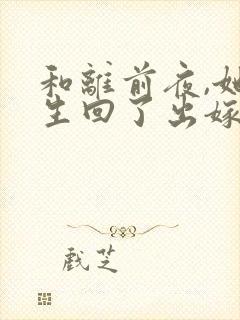 和離前夜,她
生回了出嫁
戲芝